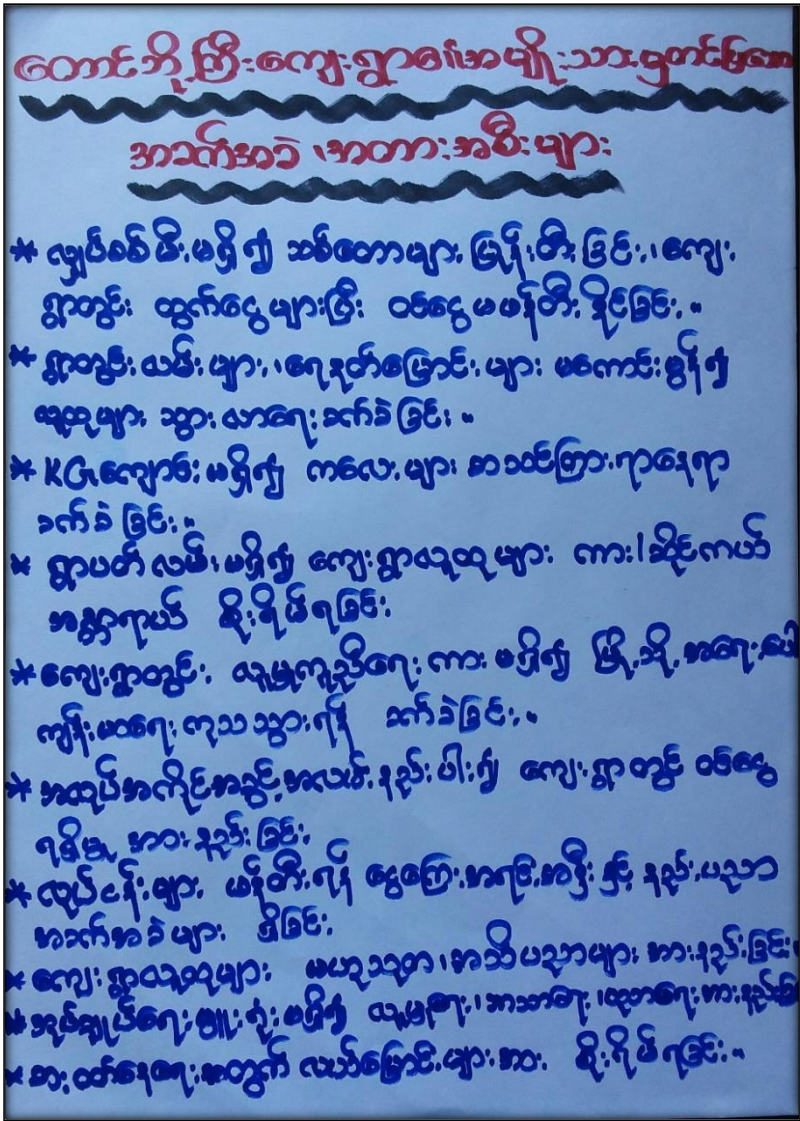 တောင်ဘို့ကြီးကျေးရွာ၏အမျိုးသားမှတင်ပြသော
အခက်အခဲ ၊အတားအစီးများ
* လျှပ်စစ်မီးမရှိ၍ သစ်တောများ ပြုန်းတီးခြင်း၊ကျေး
ရွာတွင်း ထွက်ငွေများပြီး ဝင်ငွေမဖန်တီးနိုင်ခြင်း။
* ရွာတွင်းလမ်းများ၊ရေနုတ်မြောင်းများ မကောင်းမွန်၍
လူထုများ သွားလာရေးခက်ခဲခြင်း။
* KG ကျောင်းမရှိ၍ ကလေးများ စာသင်ကြားရာနေရာ
ခက်ခဲခြင်း။
* ရွာပတ်လမ်းမရှိ၍ ကျေးရွာလူထုများ ကား/ဆိုင်ကယ်
အန္တာရာယ် စိုးရိမ်ရခြင်း
* ကျေးရွာတွင်း လူမှုကူညီရေးကားမရှိ၍ မြို့သို့အရေးပေါ်
ကျန်းမာရေးကုသသွားရန် ခက်ခဲခြင်း။
* အလုပ်အကိုင်အခွင့်အလမ်းနည်းပါး၍ ကျေးရွာတွင် ဝင်ငွေ
ရရှိမှု အားနည်းခြင်း
* လုပ်ငန်းများ ဖန်တီးရန် ငွေကြေးအရင်းအနှီးနှင့် နည်းပညာ
အခက်အခဲများ ရှိခြင်း
* ကျေးရွာလူထုများ ဗဟုသုတ၊အသိပညာများ အားနည်းခြင်း
* အုပ်ချုပ်ရေးမှူးရုံးမရှိ၍ လူမှုရေး၊သာသာရေး၊ အားနည်း
* စားဝတ်နေရေးအတွက် လယ်မြောင်းများအား စိုးရိမ်ရခြင်း။